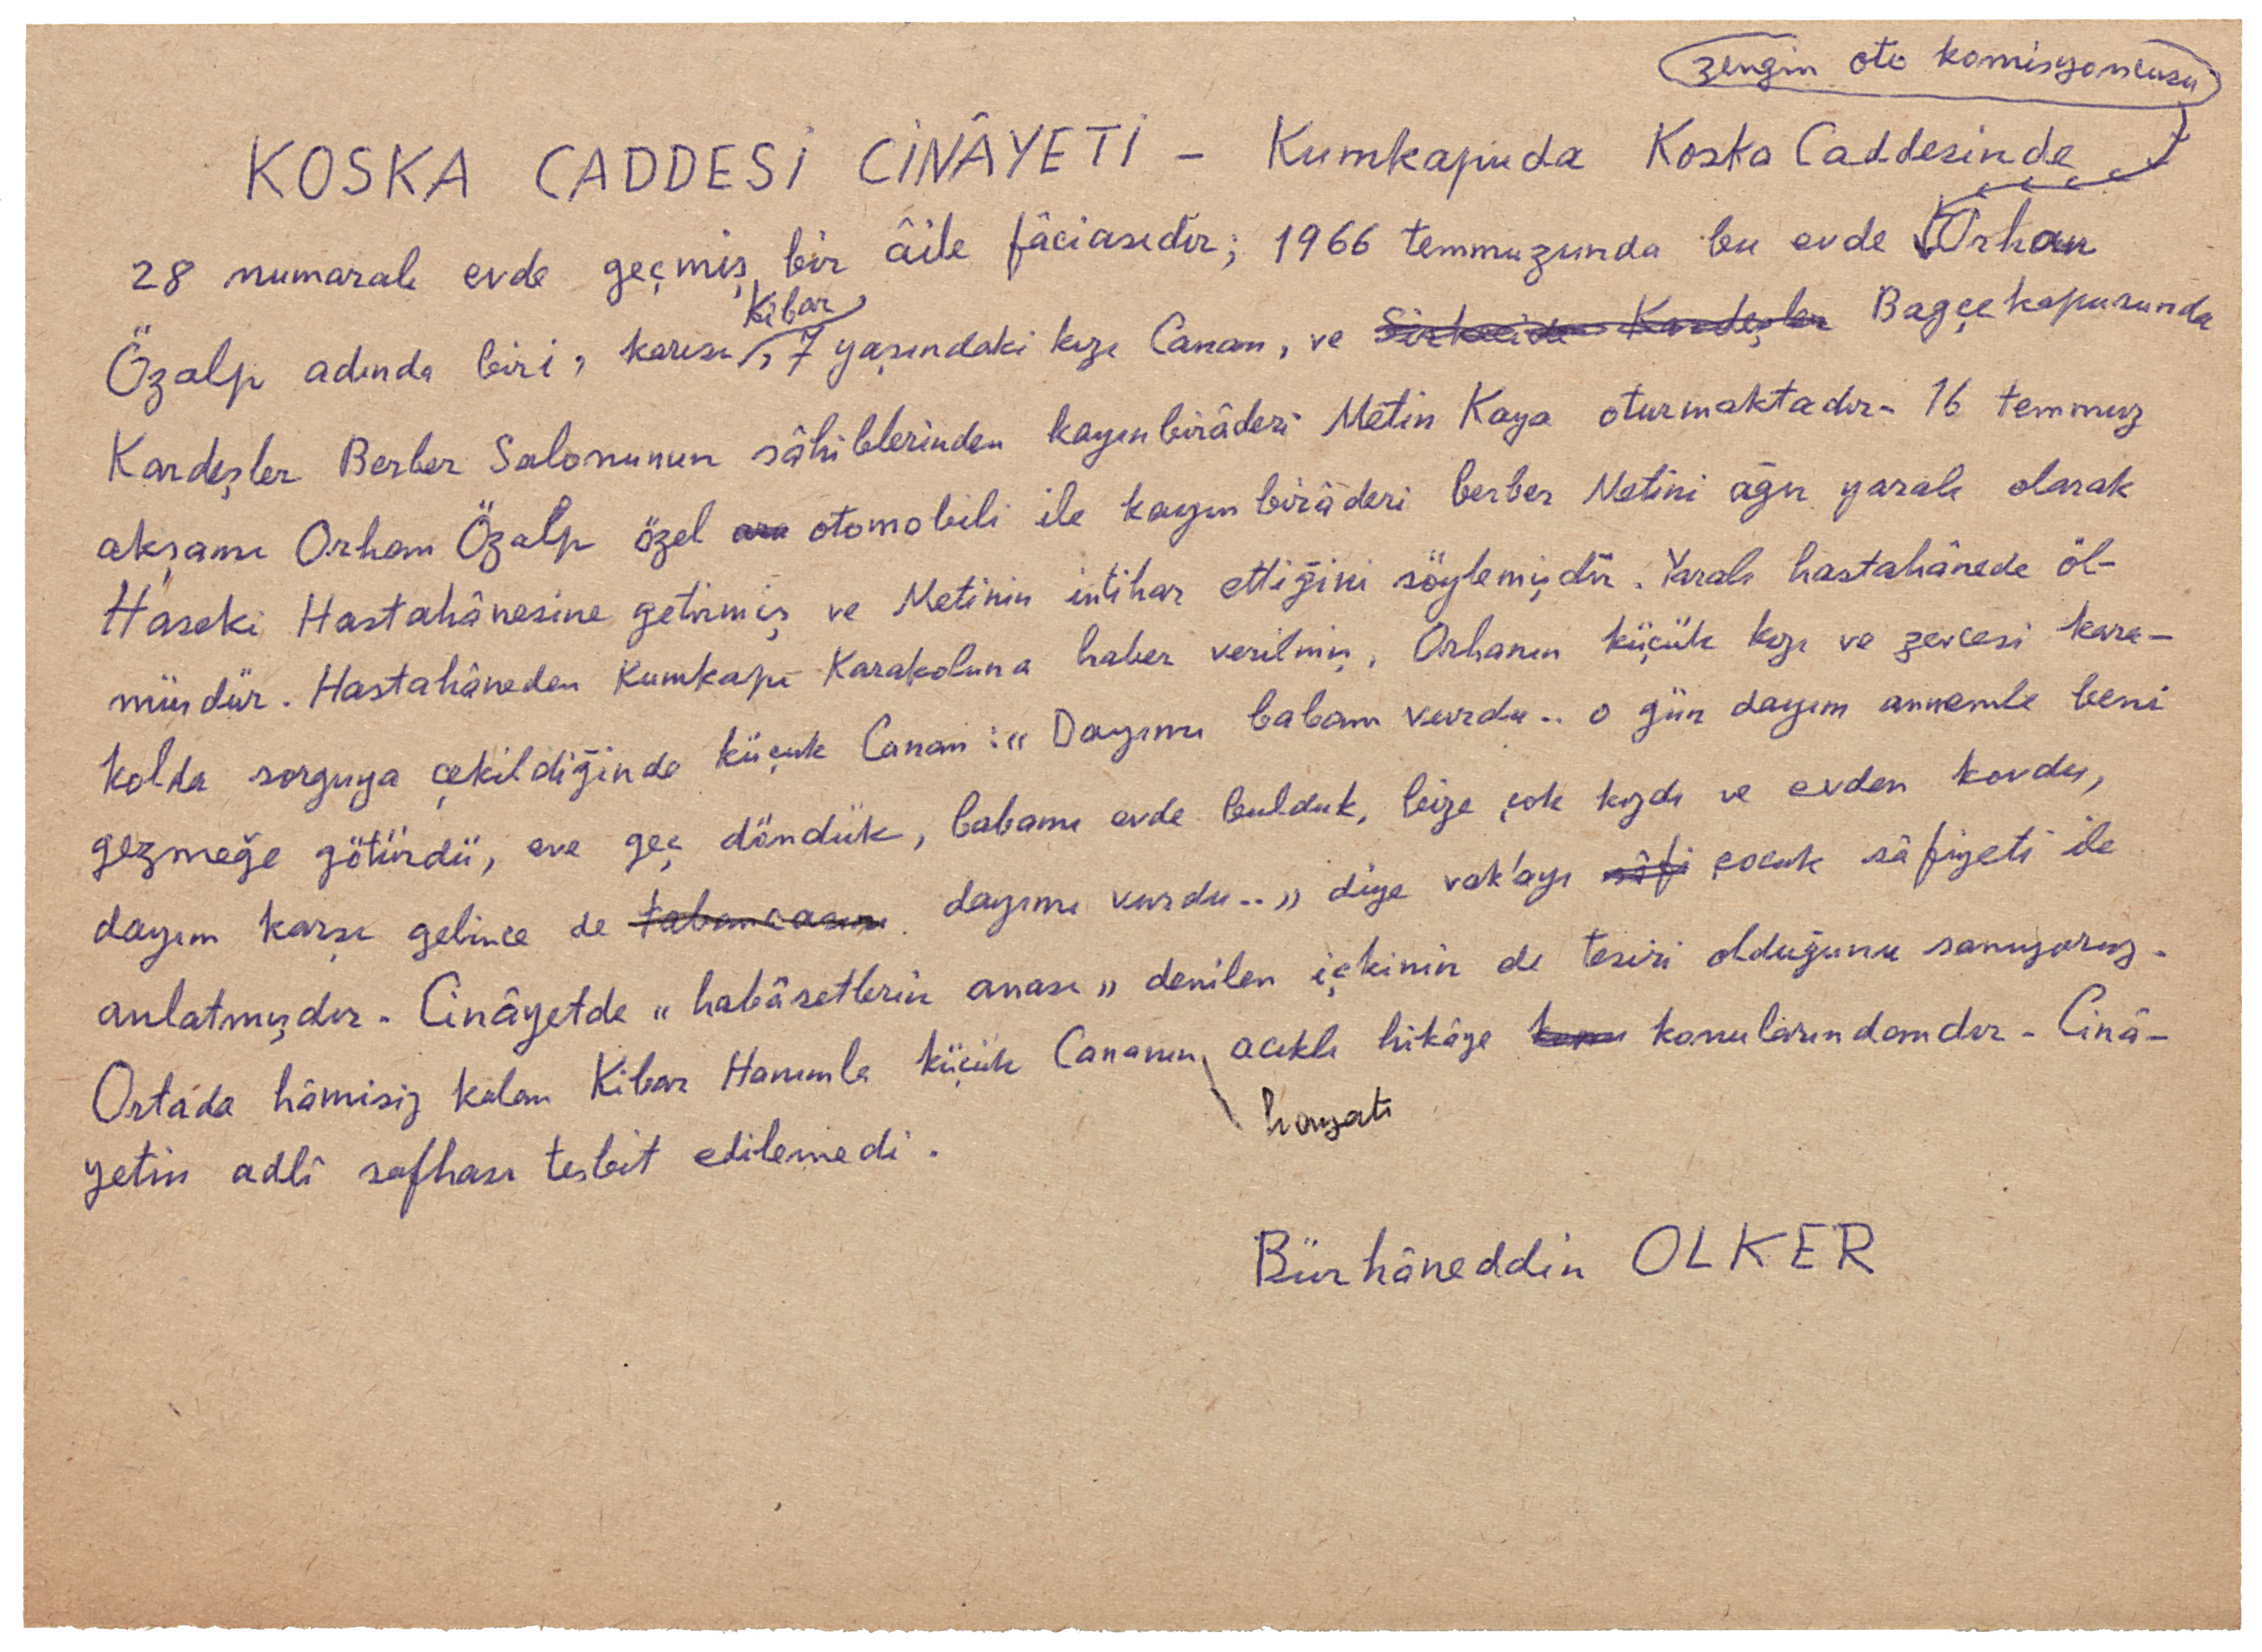 zengin oto komisyoncusu
KOSKA CADDESİ CİNÂYETİ – Kumkapuda Koska Caddesinde
28 numaralı evde geçmiş bir âile fâciasıdır; 1966 temmuzunda bu evde Orhan
Kibar
Özalp adında biri, karısı, 7 yaşındaki kızı Canan, ve Sirkecide Kardeşler Bagçekapusunda
Kardeşler Berber Salonunun sâhiblerinden kayınbirâderi Metin Kaya oturmaktadır. 16 temmuz
akşamı Orhan Özalp özel ara otomobili ile kayınbirâderi berber Metini ağır yaralı olarak
Haseki Hastahânesine getirmiş ve Metinin intihar ettiğini söylemişdir. Yaralı hastahânede öl-
müşdür. Hastahâneden Kumkapı Karakoluna haber verilmiş, Orhanın küçük kızı ve zevcesi kara-
kolda sorguya çekildiğinde küçük Canan: « Dayımı babam vurdu.. o gün dayım annemle beni
gezmeğe götürdü, eve geç döndük, babamı evde bulduk, bize çok kızdı ve evden kovdu,
dayım karşı gelince de tabancasını dayımı vurdu.. » diye vak'ayı sâfi çocuk sâfiyeti ile
anlatmışdır. Cinâyetde « habâsetlerin anası » denilen içkinin de tesiri olduğunu sanıyoruz.
Ortada hâmisiz kalan Kibar Hanımla küçük Cananın acıklı hikâye konu konularındandır. Cinâ-
hayatı
yetin adlî safhası tesbit edilemedi.
Bürhâneddin OLKER